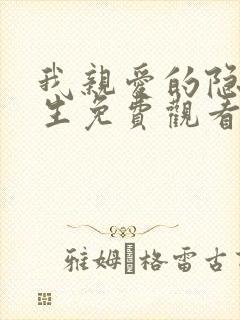 我親愛的隐
生免費觀看
雅姆·格雷古